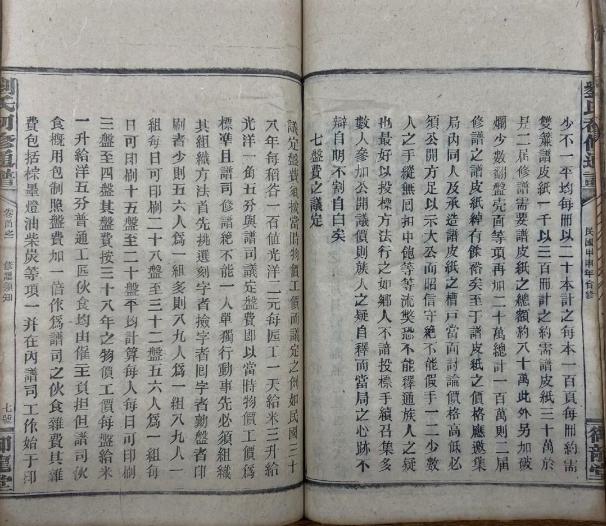 少不一平均每冊以二十本計之每本一百頁每冊約需
雙簾譜皮紙一千以三百冊計之約需譜皮紙三十萬於
是二屆修譜需要譜皮紙之總額約八十萬此外另加破
爛少數翻盤壳面等項再加二十萬總計一百萬則二屆
修譜之譜皮紙綽有餘裕矣至于譜皮紙之價格應邀集
局內同人及承造譜皮紙之槽戶當面討論價格高低必
須公開方足以示大公而昭信守絕不能假手一二少數
人之手縱無囘扣中飽等等流獘恐不能釋通族人之疑
也最好以投標方法行之如鄉人不諳投標手續召集多
數人參加公開議價則族人之疑自釋而當局之心跡不
辯自明不剖自白矣
七盤費之議定
議定盤費須按當時物價工價而議定之例如民國二十
八年每稻谷一百値光洋二元每匠工一天給米三升給
光洋一角五分與譜司議定盤費即以當時物價工價爲
標準且譜司修譜絕不能一人單獨行動事先必須組織
其組織方法首先挑選刻字者撿字者囘字者勸盤者印
刷者少則五六人爲一組多則八九人爲一組八九人一
組每日可印刷二十八盤至三十二盤五六人爲一組每
日可印刷十五盤至二十盤平均計算每人每日可印刷
三盤至四盤其盤費按三十八年之物價工價每盤給米
一升給洋五分普通工匠伙食均由僱主負担但譜司伙
食概用包制照盤費加一倍作爲譜司之伙食雜費其雜
費包括棕墨燈油柴炭等項一并在內譜司工作始于印
劉氏初修通譜
卷首之一
修譜須知
七號
御龍堂
民國甲申年合修
御龍堂